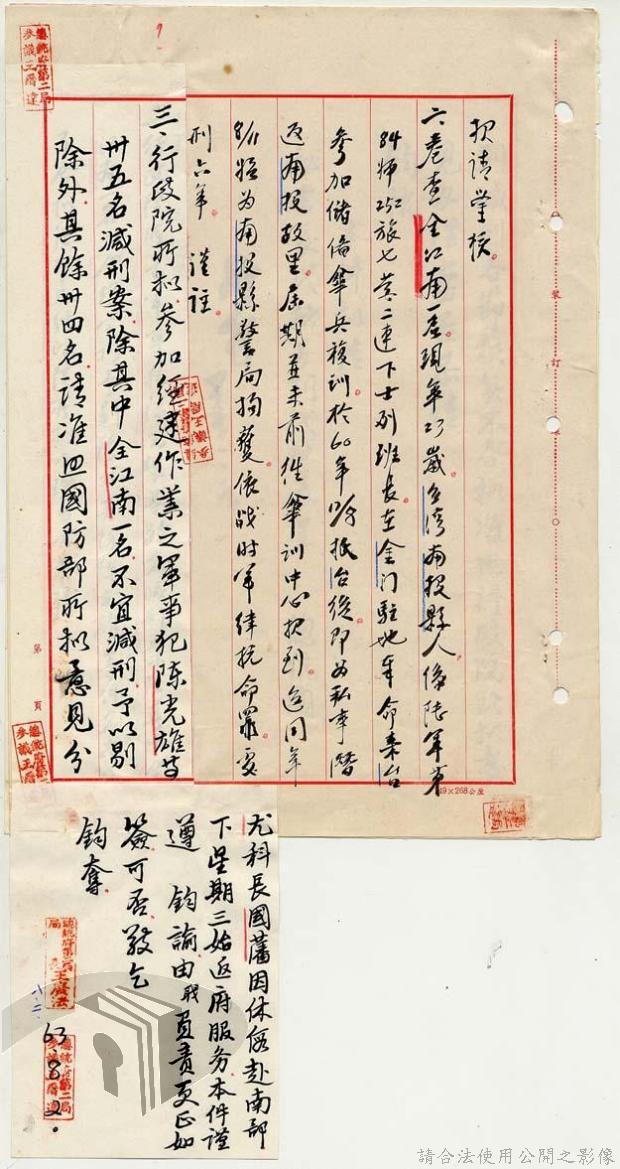 核請
六、卷查金江南一名現年23歲台灣南投縣人係陸軍第
84師252旅七營二連下士副班長在金門駐地奉命來台
參加儲備傘兵複訓於60年抵台後即因私事潛
返南投故里屆期並未前往傘訓中心報到迄同年
8/11始為南投縣警局捕獲依戰時軍律抗命罪處
刑六年 謹註
三、行政院所擬參加經建作業之軍事犯陳光雄等
卅五名減刑案除其中金江南一名不宜減刑予以剔
除外其餘卅四名請准照國防部所擬意見分
尤科長國藩因休假赴南部
下星期三始返府服务本件謹
遵 鈞諭由我負責更正如
簽可否敬乞
鈞奪
63 8 2
八.二.
總統府第二局
參議王曆達
裝
訂
第 頁
×268公厘
請合法使用公開之影像